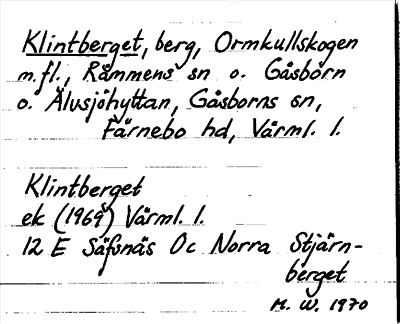 Klintberget, berg, Ormkullskogen
m.fl., Råmmens sn o. Gåsborn
o. Älvsjöhyttan, Gåsborns sn,
Färnebo hd, Värml. l.
Klintberget
ek (1969) Värml. l.
12 E Säfsnäs Oc Norra Stjärn-
berget
M. W. 1970